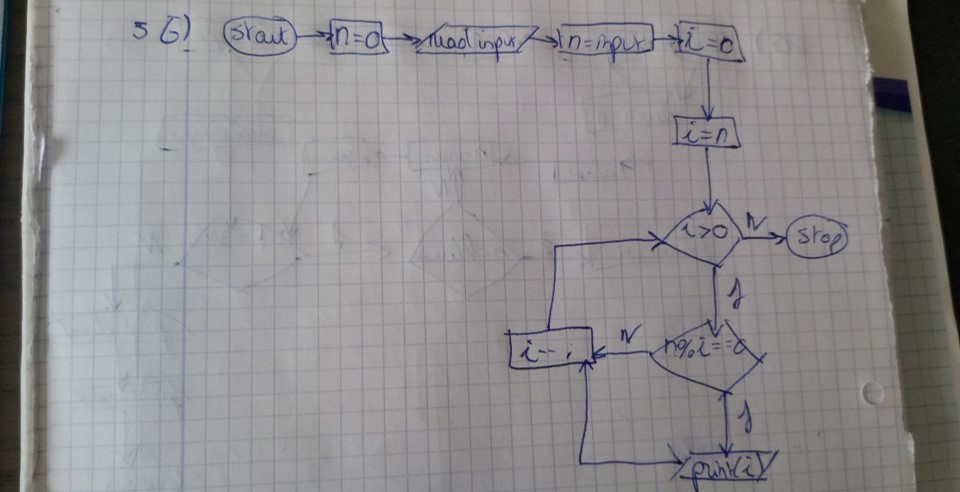 5 G) start n=0 read input n=input i=0
i=n
i>0 N stop
J
i--; N n%i==0
J
print(i)